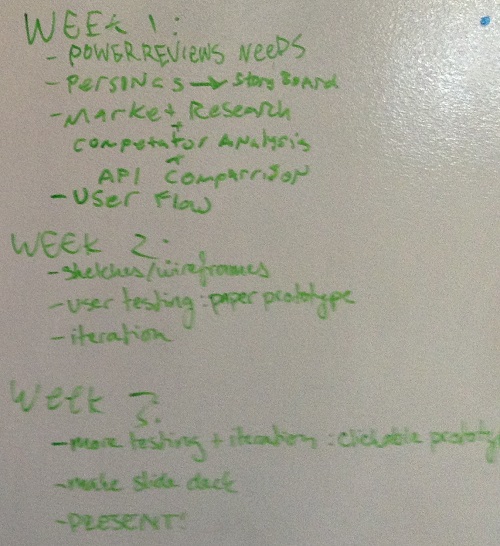 WEEK 1:
- POWERREVIEWS NEEDS
- PERSONAS → Story Board
- Market Research
+
Competator Analysis
+
API Comparrison
- User Flow
WEEK 2:
- sketches/wireframes
- user testing: paper prototype
- iteration
Week 3:
- more testing + iteration: clickable prototy
- make slide deck
- PRESENT!